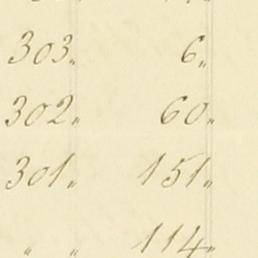 303„ 6„
302„ 60„
301„ 151„
„ „ 114„